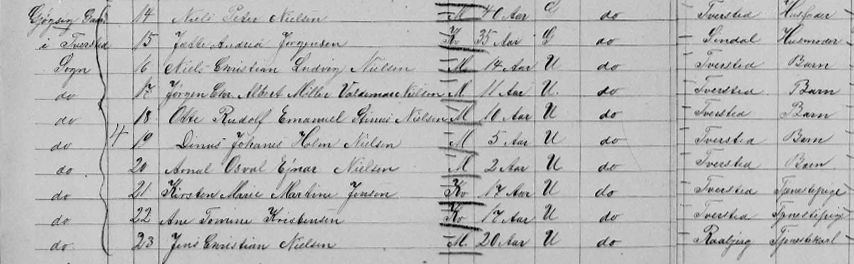 Gjøgsig Gaard 14 Niels Peter Nielsen M 40 Aar G do Tversted Husfader
i Tversted 15 Jette Andrea Jørgensen Kv 35 Aar G do Sindal Husmoder
Sogn 16 Niels Christian Ludvig Nielsen M 14 Aar U do Tversted Barn
do 17 Jørgen Chr. Albert Miller Valdemar Nielsen M 11 Aar U do Tversted Barn
do 18 Otto Rudolf Emanuel Nielsen M 10 Aar U do Tversted Barn
do 4 19 Dinus Johanes Holm Nielsen M 5 Aar U do Tversted Barn
do 20 Amal Osval Ejnar Nielsen M 2 Aar U do Tversted Barn
do 21 Kirsten Marie Martine Jensen Kv 17 Aar U do Tversted Tjenestepige
do 22 Ane Tomine Kristensen Kv 17 Aar U do Tversted Tjenestepig
do 23 Jens Christian Nielsen M 20 Aar U do Raabjerg Tjenestekarl